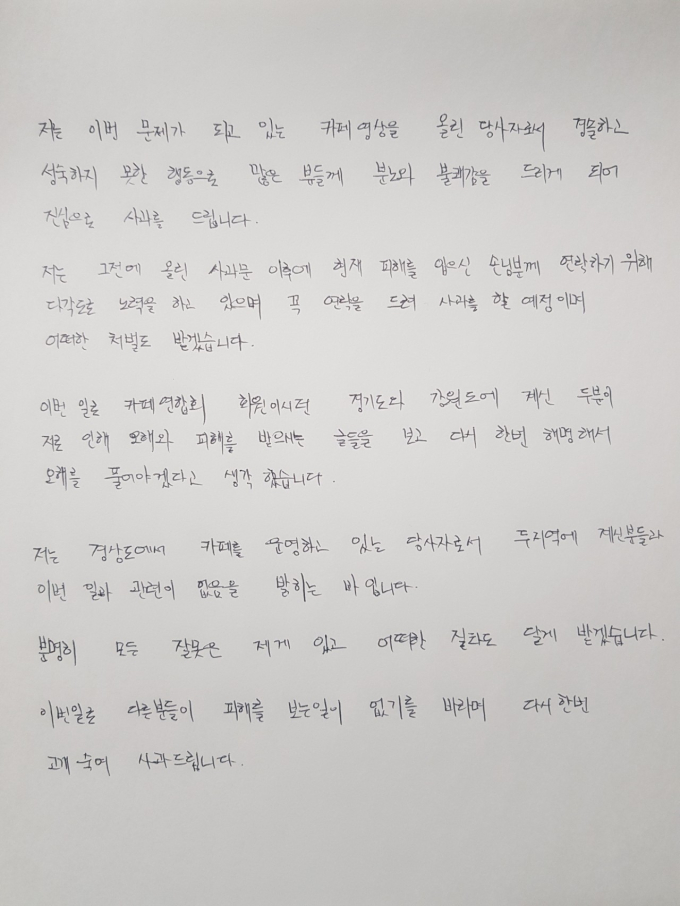 저는 이번 문제가 되고 있는 카페 영상을 올린 당사자로서 경솔하고
성숙하지 못한 행동으로 많은 분들께 분노와 불쾌감을 드리게 되어
진심으로 사과를 드립니다.
저는 그전에 올린 사과문 이후에 현재 피해를 입으신 손님분께 연락하기 위해
다각도로 노력을 하고 있으며 꼭 연락을 드려 사과를 할 예정이며
어떠한 처벌도 받겠습니다.
이번 일로 카페연합회 회원이시던 경기도다 강원도에 계신 두분이
저로 인해 오해와 피해를 받으시는 글들을 보고 다시 한번 해명해서
오해를 풀어야겠다고 생각했습니다.
저는 경상도에서 카페를 운영하고 있는 당사자로서 두지역에 계신분들과
이번 일과 관련이 없음을 밝히는 바 입니다.
분명히 모든 잘못은 제게 있고 어떠한 질타도 달게 받겠습니다.
이번일로 다른분들이 피해를 보는일이 없기를 바라며 다시한번
고개 숙여 사과드립니다.